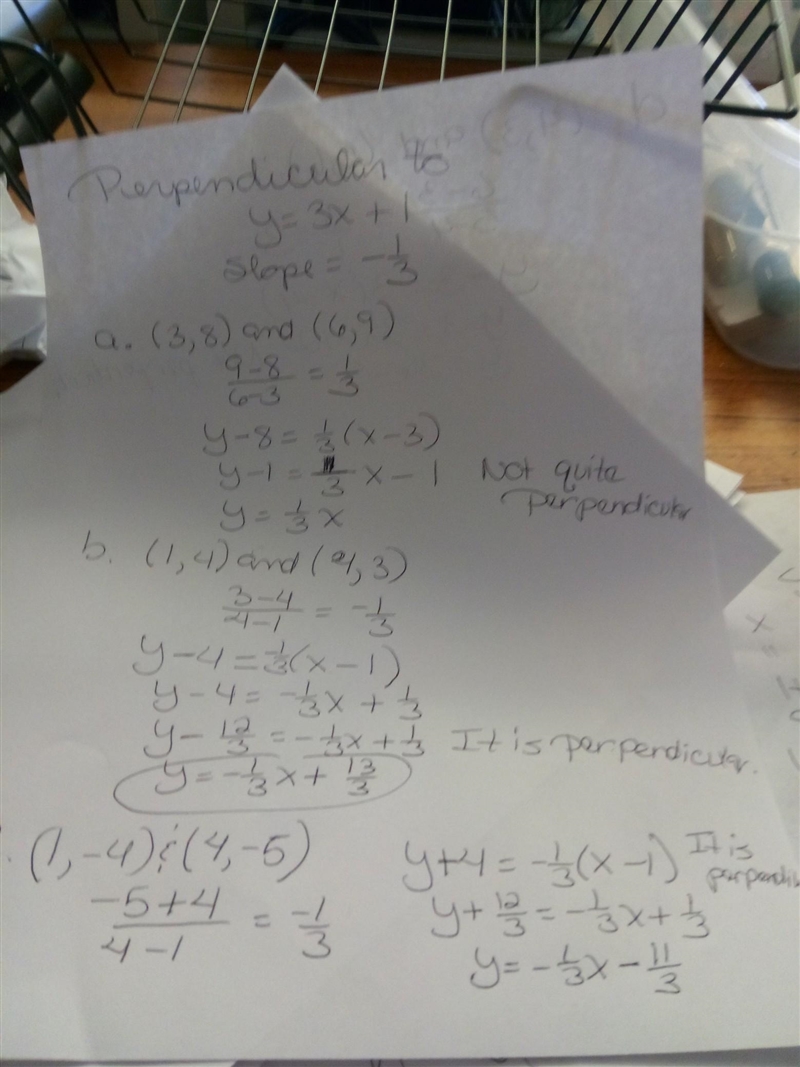 Perpendicular to
y = 3x + 1
slope = -1/3
a. (3,8) and (6,9)
9-8/6-3 = 1/3
y-8 = 1/3(x-3)
y-1 = 1/3 x - 1 Not quite perpendicular
y = 1/3 x
b. (1,4) and (4,3)
3-4/4-1 = -1/3
y-4 = -1/3(x-1)
y-4 = -1/3x + 1/3
y - 12/3 = -1/3x + 1/3 It is perpendicular.
y = -1/3x + 13/3
(1,-4) & (4,-5)
-5+4/4-1 = -1/3
y+4 = -1/3(x-1) It is
y + 12/3 = -1/3x + 1/3
y = -1/3x - 11/3